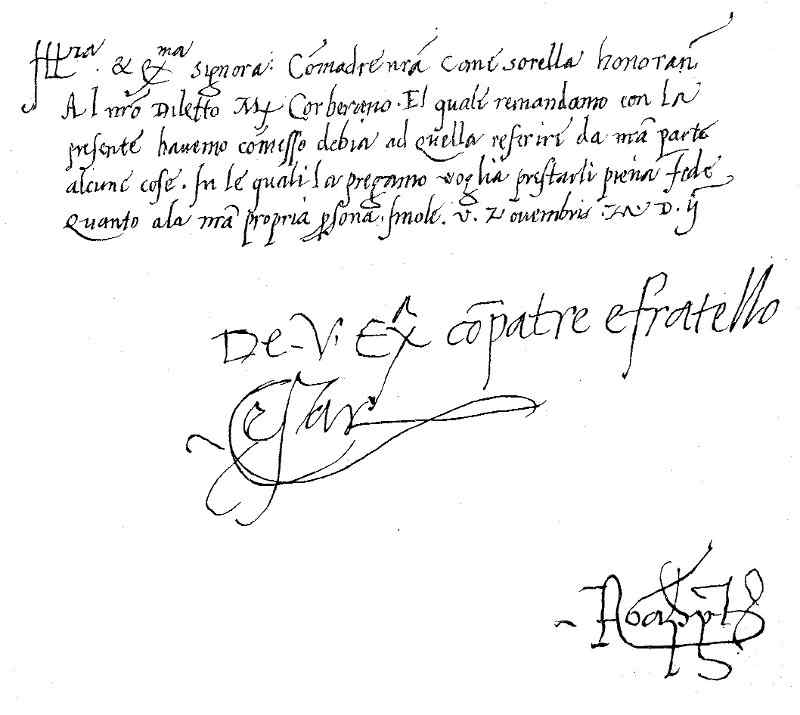 Ill^ra. & Ex^ma signora: Cōmadre nrā come sorella honoran̄
Al nrō Diletto Mx Corberano. El quale remandamo con la
presente havemo cōmesso debia ad quella referire da mā parte
alcune cose. In le quali la pregamo voglia prestarli piena fede
Quanto ala mā propria p̱sona. Imole. v. Novembris. M D. ij
De. V. Ex^a cōpatre e fratello
Cesar